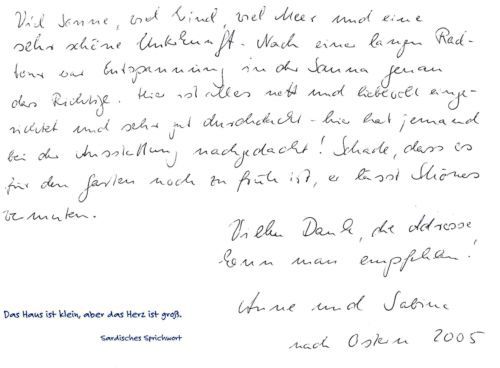 Viel Sonne, viel Wind, viel Meer und eine
sehr schöne Unterkunft. Nach einer langen Rad-
tour war Entspannung in der Sauna genau
das Richtige. Hier ist alles nett und liebevoll einge-
richtet und sehr gut durchdacht - hier hat jemand
bei der Ausstattung nachgedacht! Schade, dass es
für den Garten noch zu früh ist, er lässt Schönes
vermuten.
Vielen Dank, die Adresse
kann man empfehlen!
Anne und Sabine
nach Ostern 2005
Das Haus ist klein, aber das Herz ist groß.
Sardisches Sprichwort